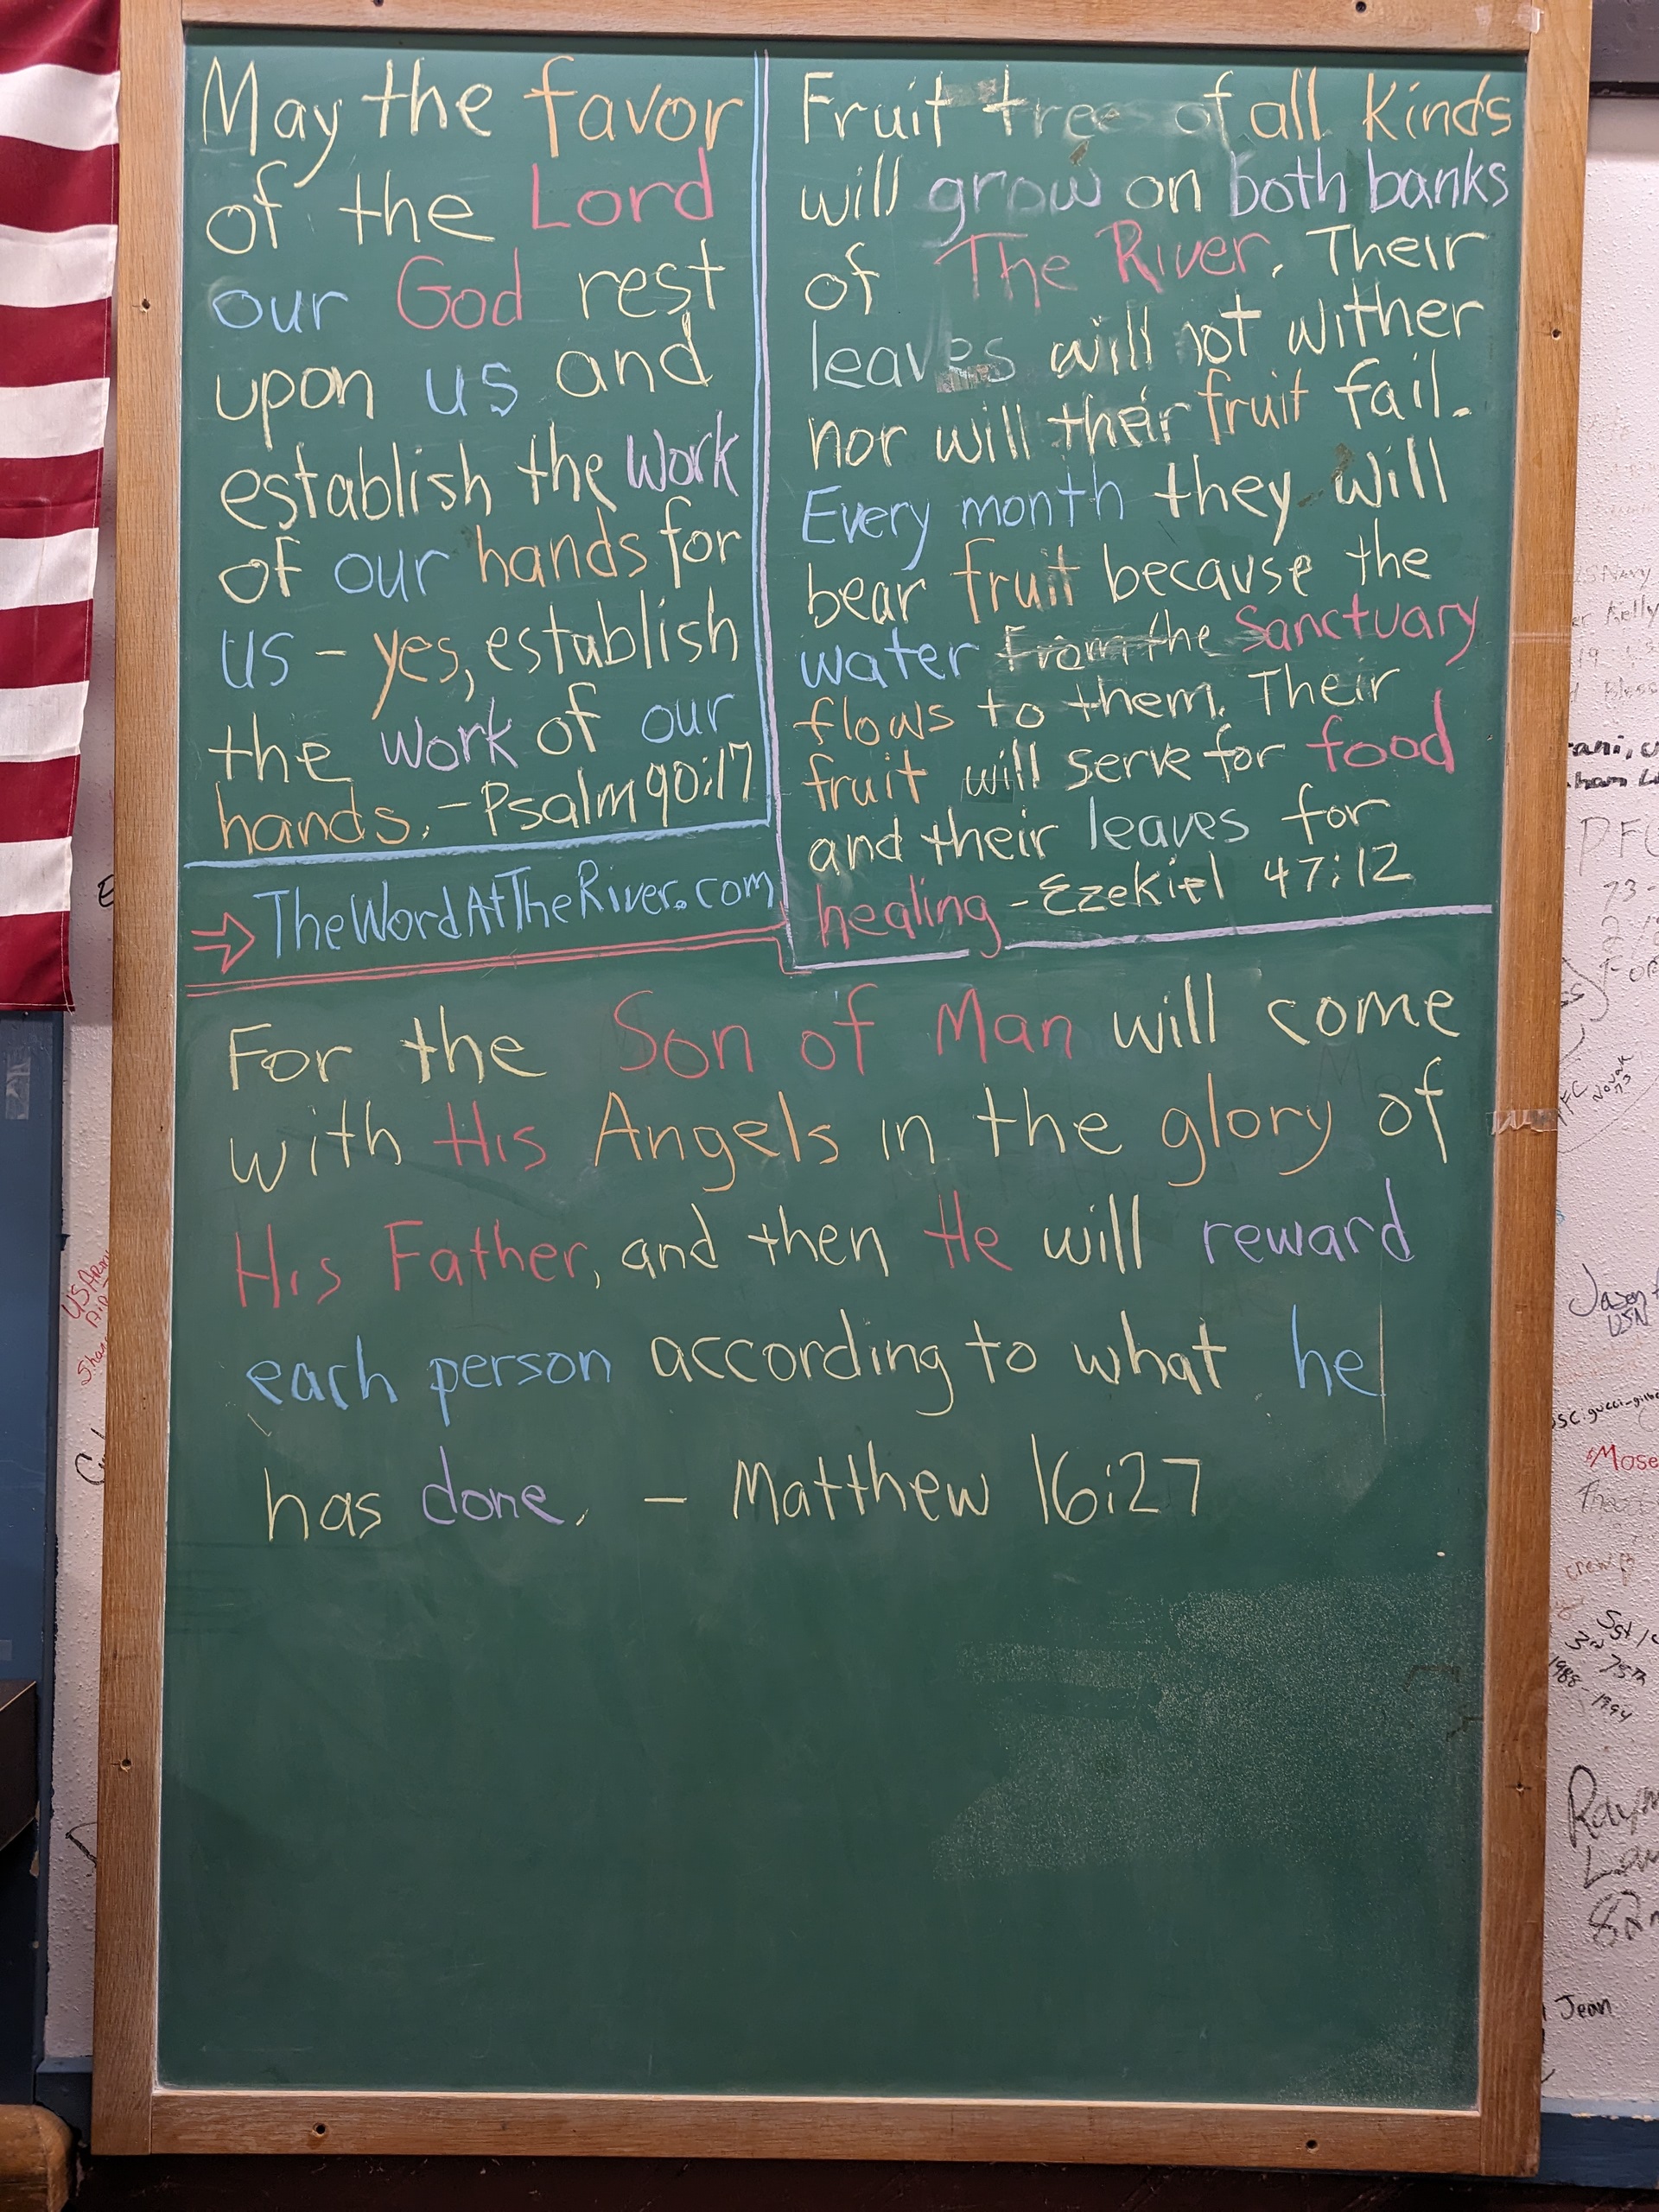 May the favor
of the Lord
our God rest
upon us and
establish the work
of our hands for
us - yes, establish
the work of our
hands. - Psalm 90:17
→ TheWordAtTheRiver.com
Fruit trees of all kinds
will grow on both banks
of The River. Their
leaves will not wither
nor will their fruit fail.
Every month they will
bear fruit because the
water from the Sanctuary
flows to them. Their
fruit will serve for food
and their leaves for
healing - Ezekiel 47:12
For the Son of Man will come
with His Angels in the glory of
His Father, and then He will reward
each person according to what he
has done. - Matthew 16:27
US Army
Navy
Kelly
PFC
73-
Jason
USN
SSC.gucci-gilbe
Mose
Sgt
75th
1988-1994
Raym
Jean